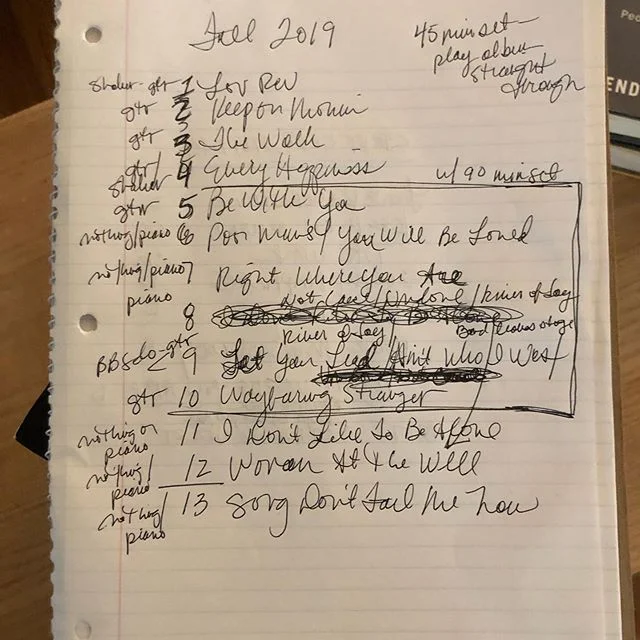 Fall 2019
45 min set-
play album
straight
through
Ped
END
shaker-gtr 1 Lov Rev
gtr 2 Keep on Movin
gtr 3 The Walk
gtr/shaker 4 Every Happiness
w/ 90 min set
gtr 5 Be With You
nothing/piano 6 Poor Man's / You Will Be Loved
nothing/piano 7 Right Where You Are
piano 8 Not Case / Undone / River of Joy
River of Joy / Bad
gtr 9 Let Your Lead / Ain't Who I Was /
gtr 10 Wayfaring Stranger
nothing or piano 11 I Don't Like To Be Alone
nothing/piano 12 Woman At The Well
nothing/piano 13 Song Don't Fail Me Now